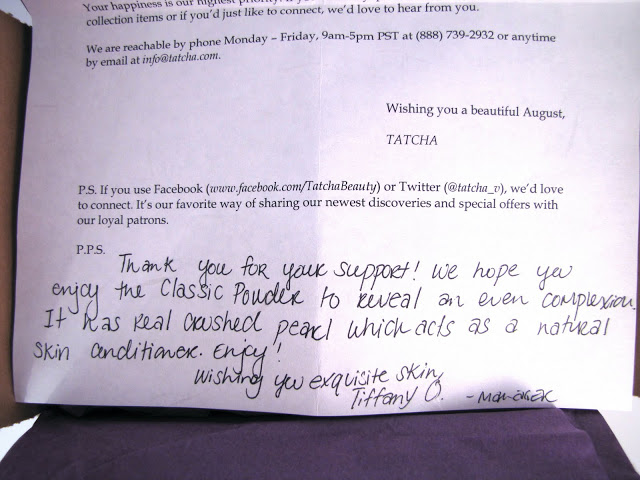 Your happiness is our highest priority. If you
collection items or if you'd just like to connect, we'd love to hear from you.
We are reachable by phone Monday – Friday, 9am-5pm PST at (888) 739-2932 or anytime
by email at info@tatcha.com.
Wishing you a beautiful August,
TATCHA
P.S. If you use Facebook (www.facebook.com/TatchaBeauty) or Twitter (@tatcha_v), we'd love
to connect. It's our favorite way of sharing our newest discoveries and special offers with
our loyal patrons.
P.P.S.
Thank you for your support! We hope you
enjoy the Classic Powder to reveal an even complexion.
It has real crushed pearl which acts as a natural
skin conditioner. Enjoy!
Wishing you exquisite skin,
Tiffany O. - Manager